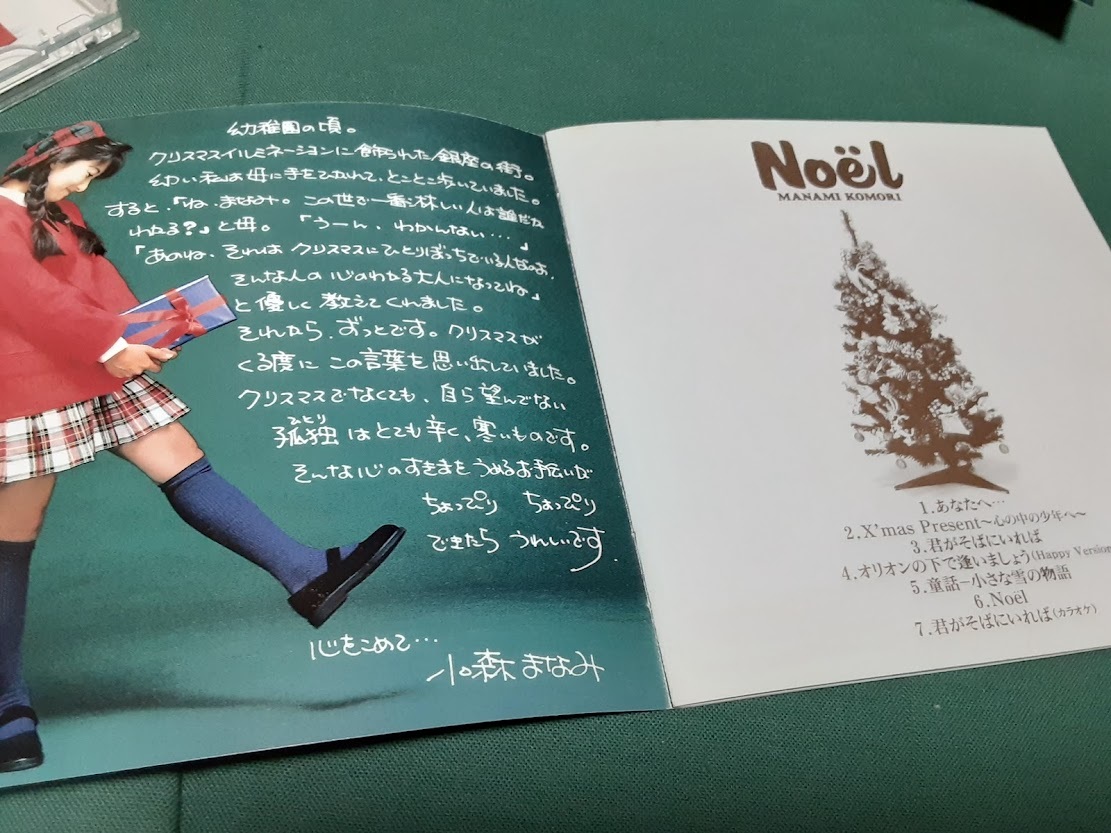 幼稚園の頃。
クリスマスイルミネーションに飾られた銀座の街。
幼い私は母に手をひかれて、とことこ歩いていました。
すると、「ね、まなみ。この世で一番淋しい人は誰だか
わかる?」と母。「うーん、わかんない…」
「あのね、それは クリスマスにひとりぼっちでいる人なのよ。
そんな人の心のわかる大人になってね」
と優しく教えてくれました。
それから、ずっとです。クリスマスが
くる度に この言葉を思い出していました。
クリスマスでなくても、自ら望んでない
ひとり
孤独はとても辛く、寒いものです。
そんな心のすきまをうめるお手伝いが
ちょっぴり ちょっぴり
できたら うれしいです.
心をこめて…
小森まなみ
Noël
MANAMI KOMORI
1.あなたへ…
2.X'mas Present〜心の中の少年へ〜
3.君がそばにいれば
4.オリオンの下で逢いましょう(Happy Version
5.童話−小さな雪の物語
6.Noël
7.君がそばにいれば(カラオケ)